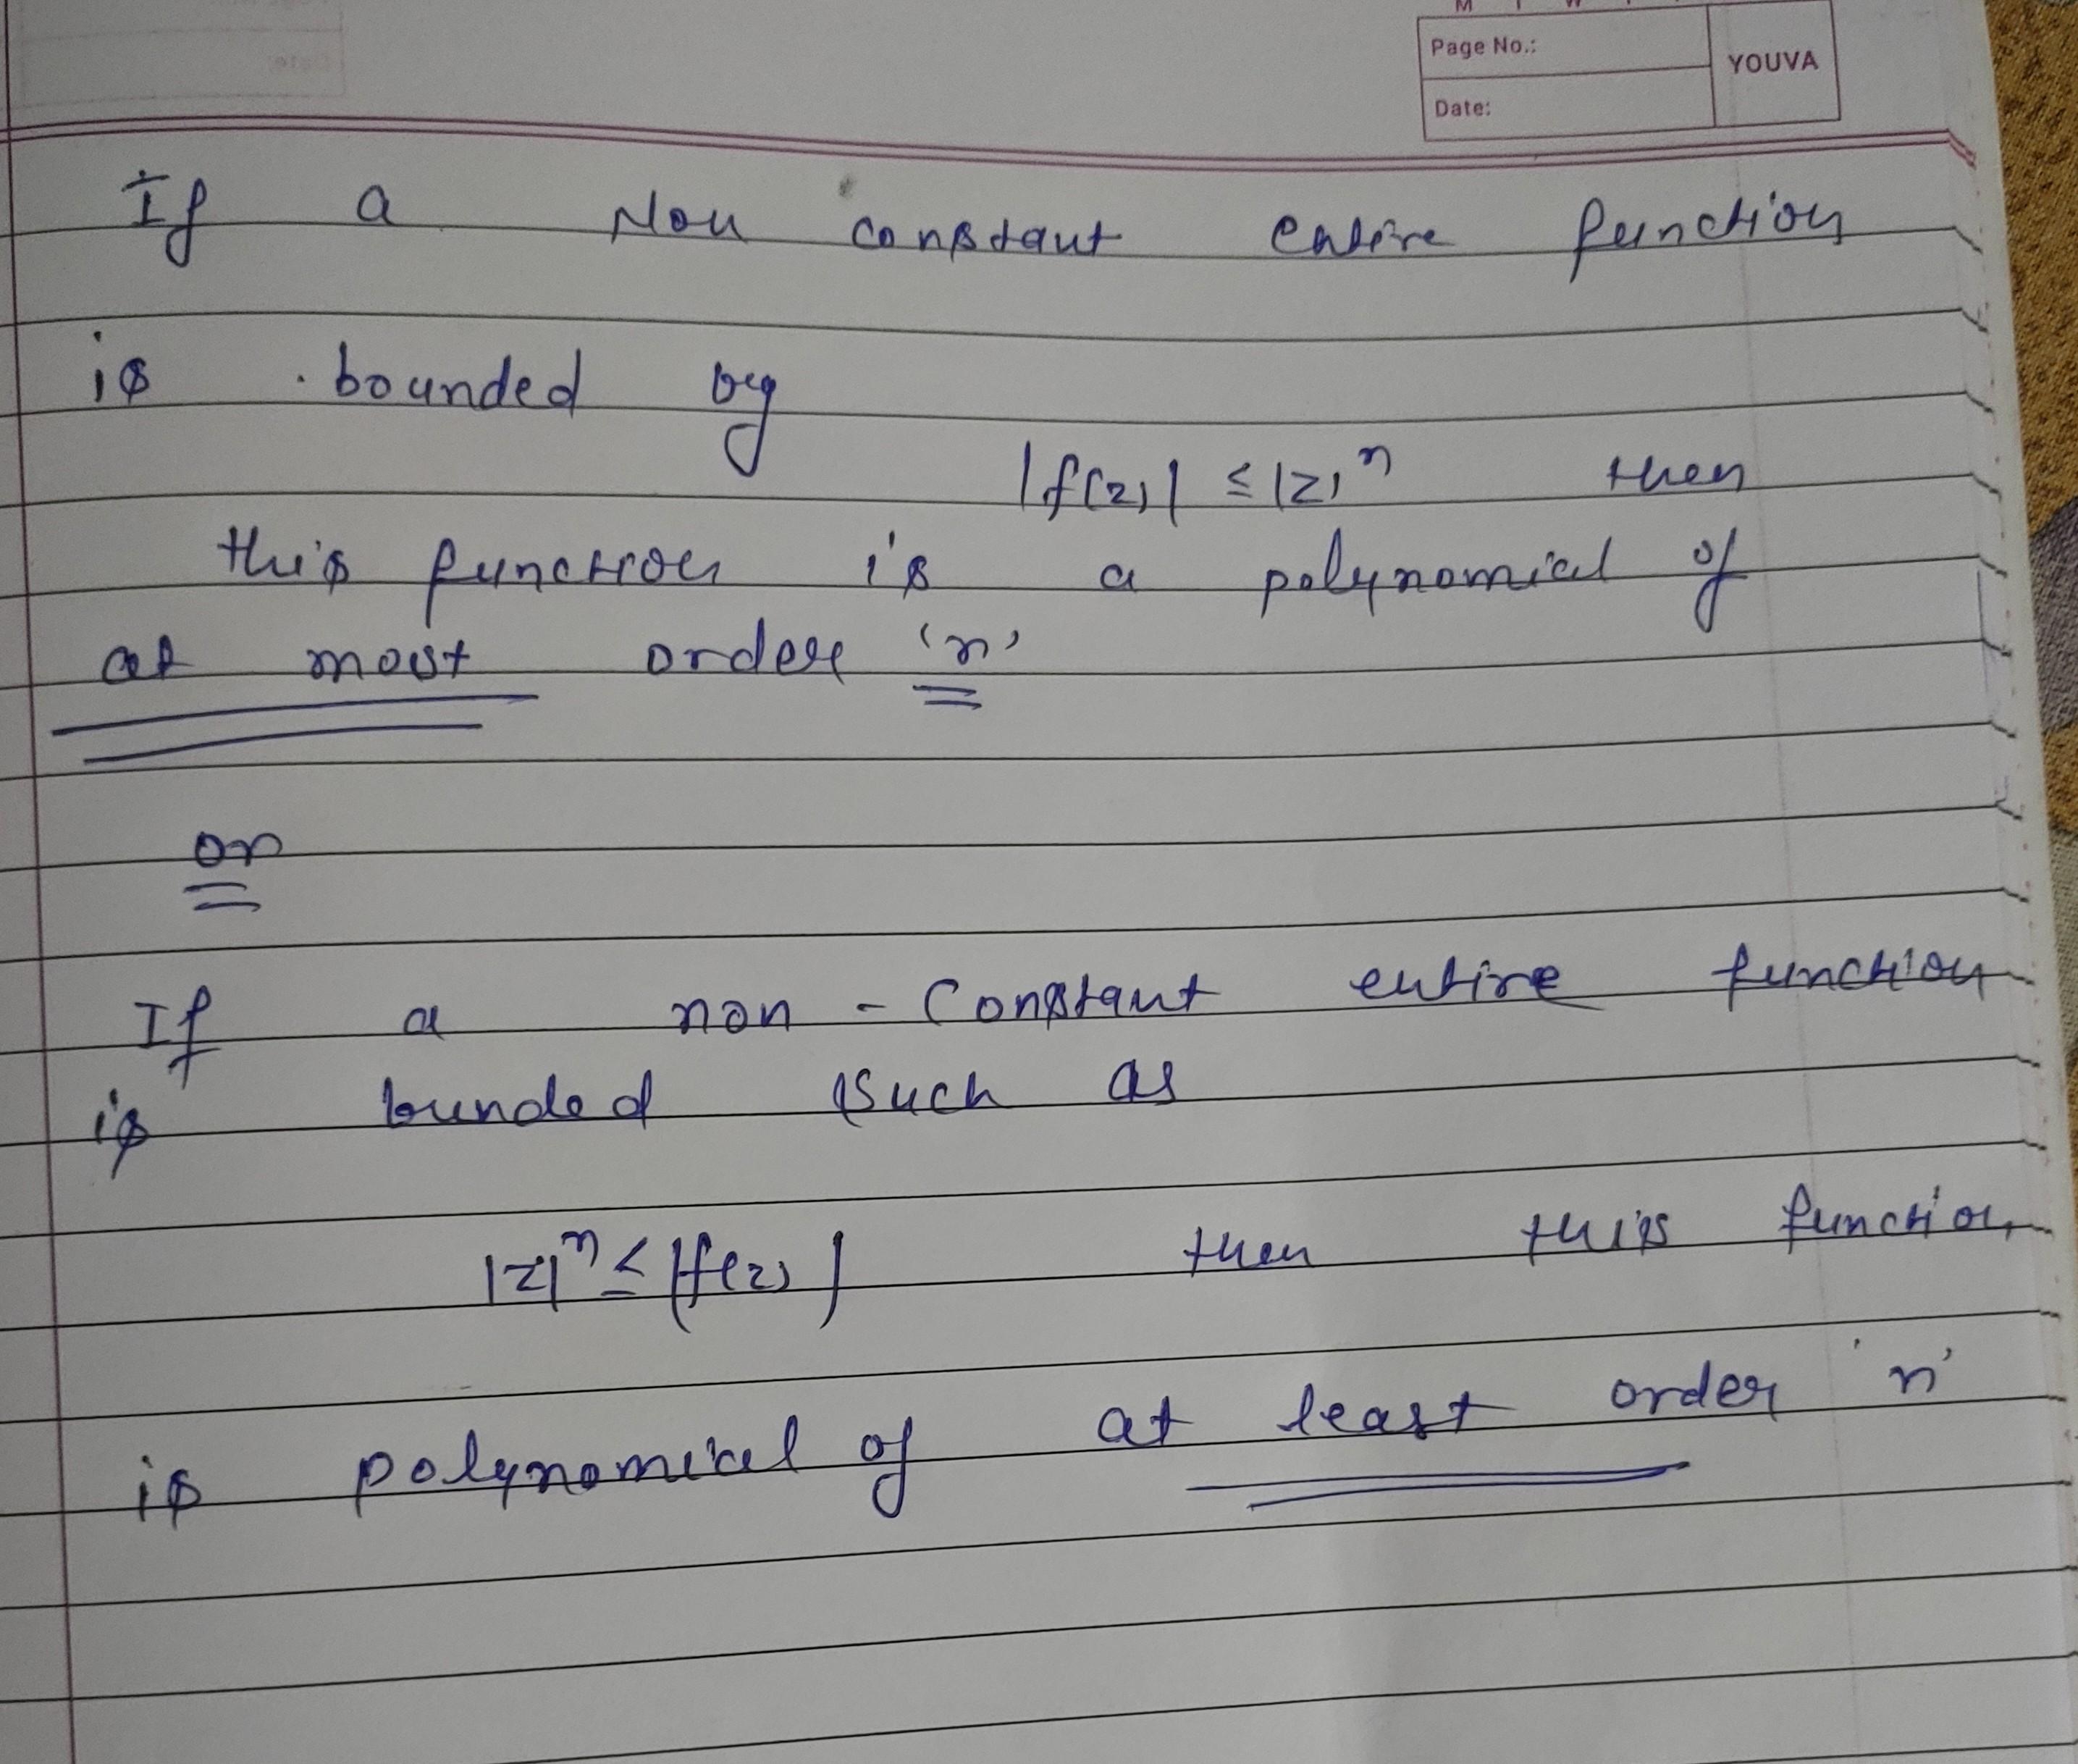 M T W
Page No.:
YOUVA
Date:
If a Non constant entire function
is bounded by
|f(z)| ≤ |z|ⁿ then
this function is a polynomial of
at most order 'n'
or
If a non - Constant entire function
is bunded such as
|z|ⁿ ≤ |f(z)| then this function
is polynomial of at least order 'n'